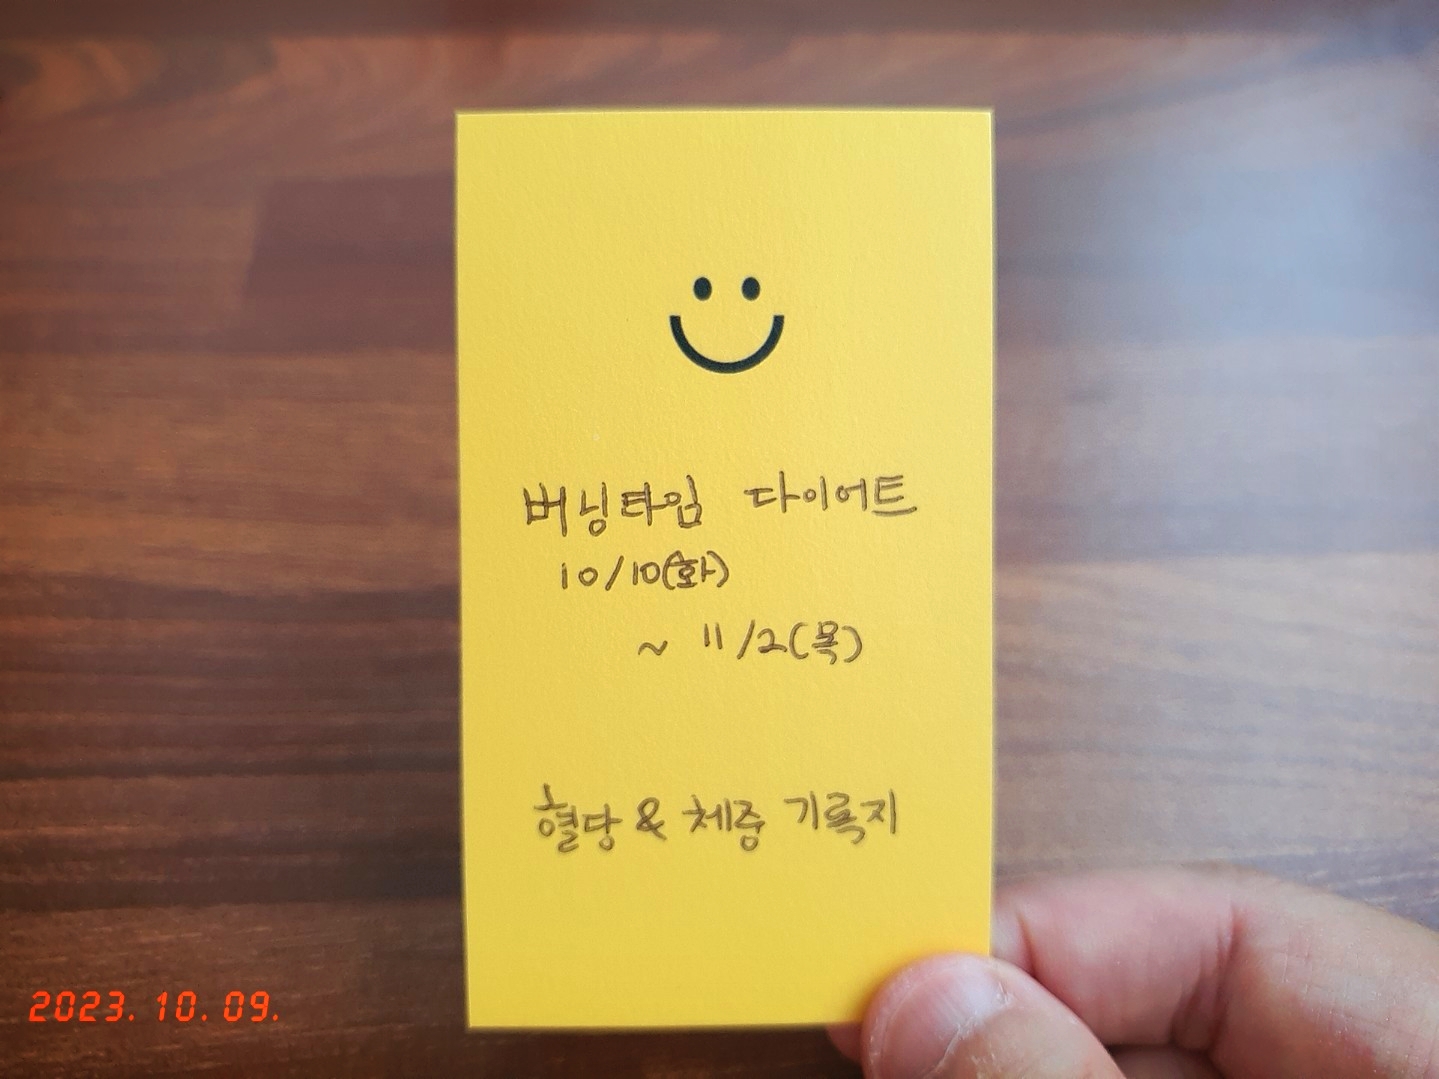 버닝타임 다이어트
10/10(화)
~ 11/2(목)
혈당 & 체중 기록지
2023. 10. 09.